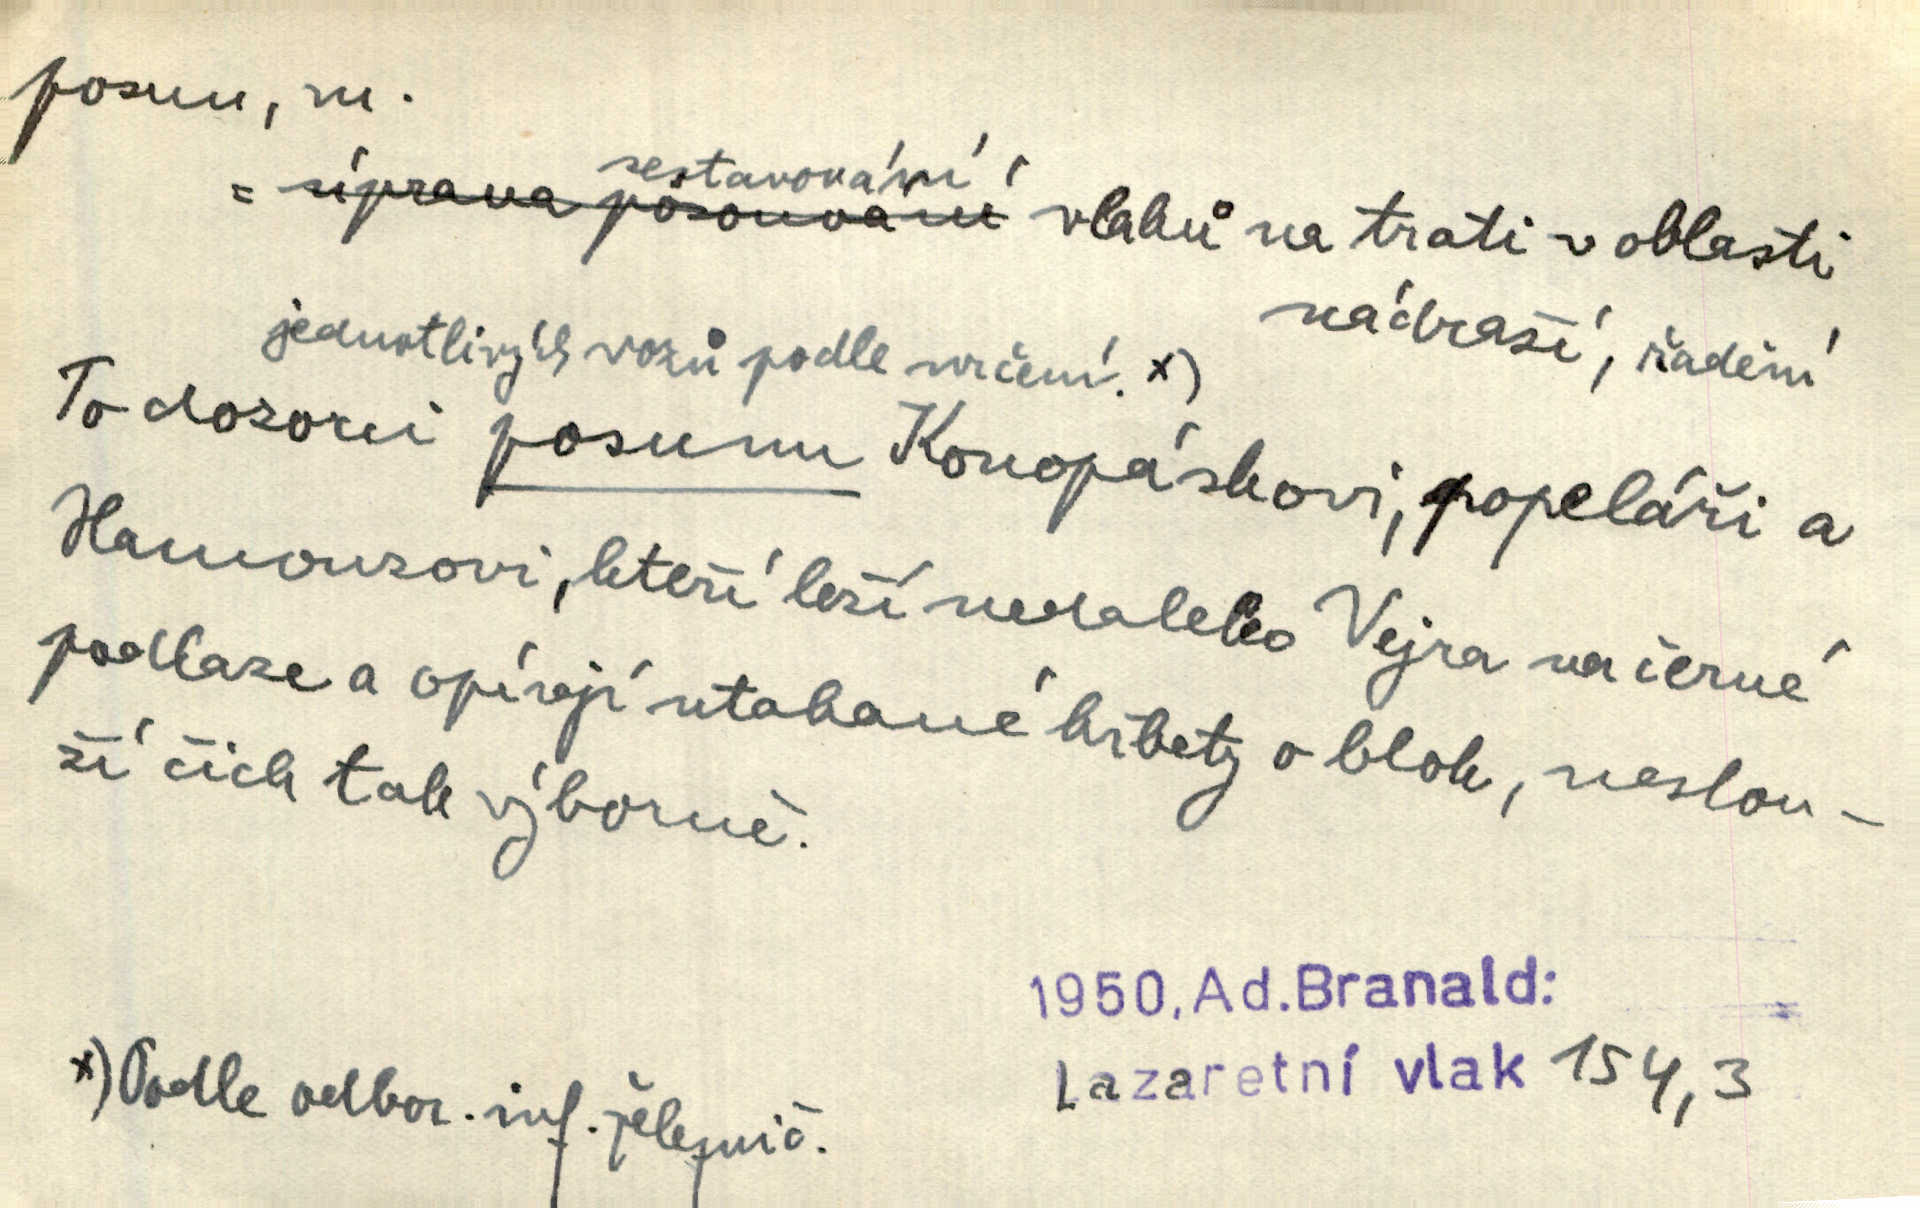 posun, m.
sestavování
= úprava posouvání vlaků na trati v oblasti
nádraží, řadění
jednotlivých vozů podle určení. x)
To dozorci posunu Konopáskovi, popeláři a
Hamouzovi, kteří leží nedaleko Vejra na černé
podlaze a opírají utahané hřbety o blok, neslou-
ží čich tak výborně.
1950, Ad. Branald:
Lazaretní vlak 154,3
x) Podle odbor. inf. železnič.